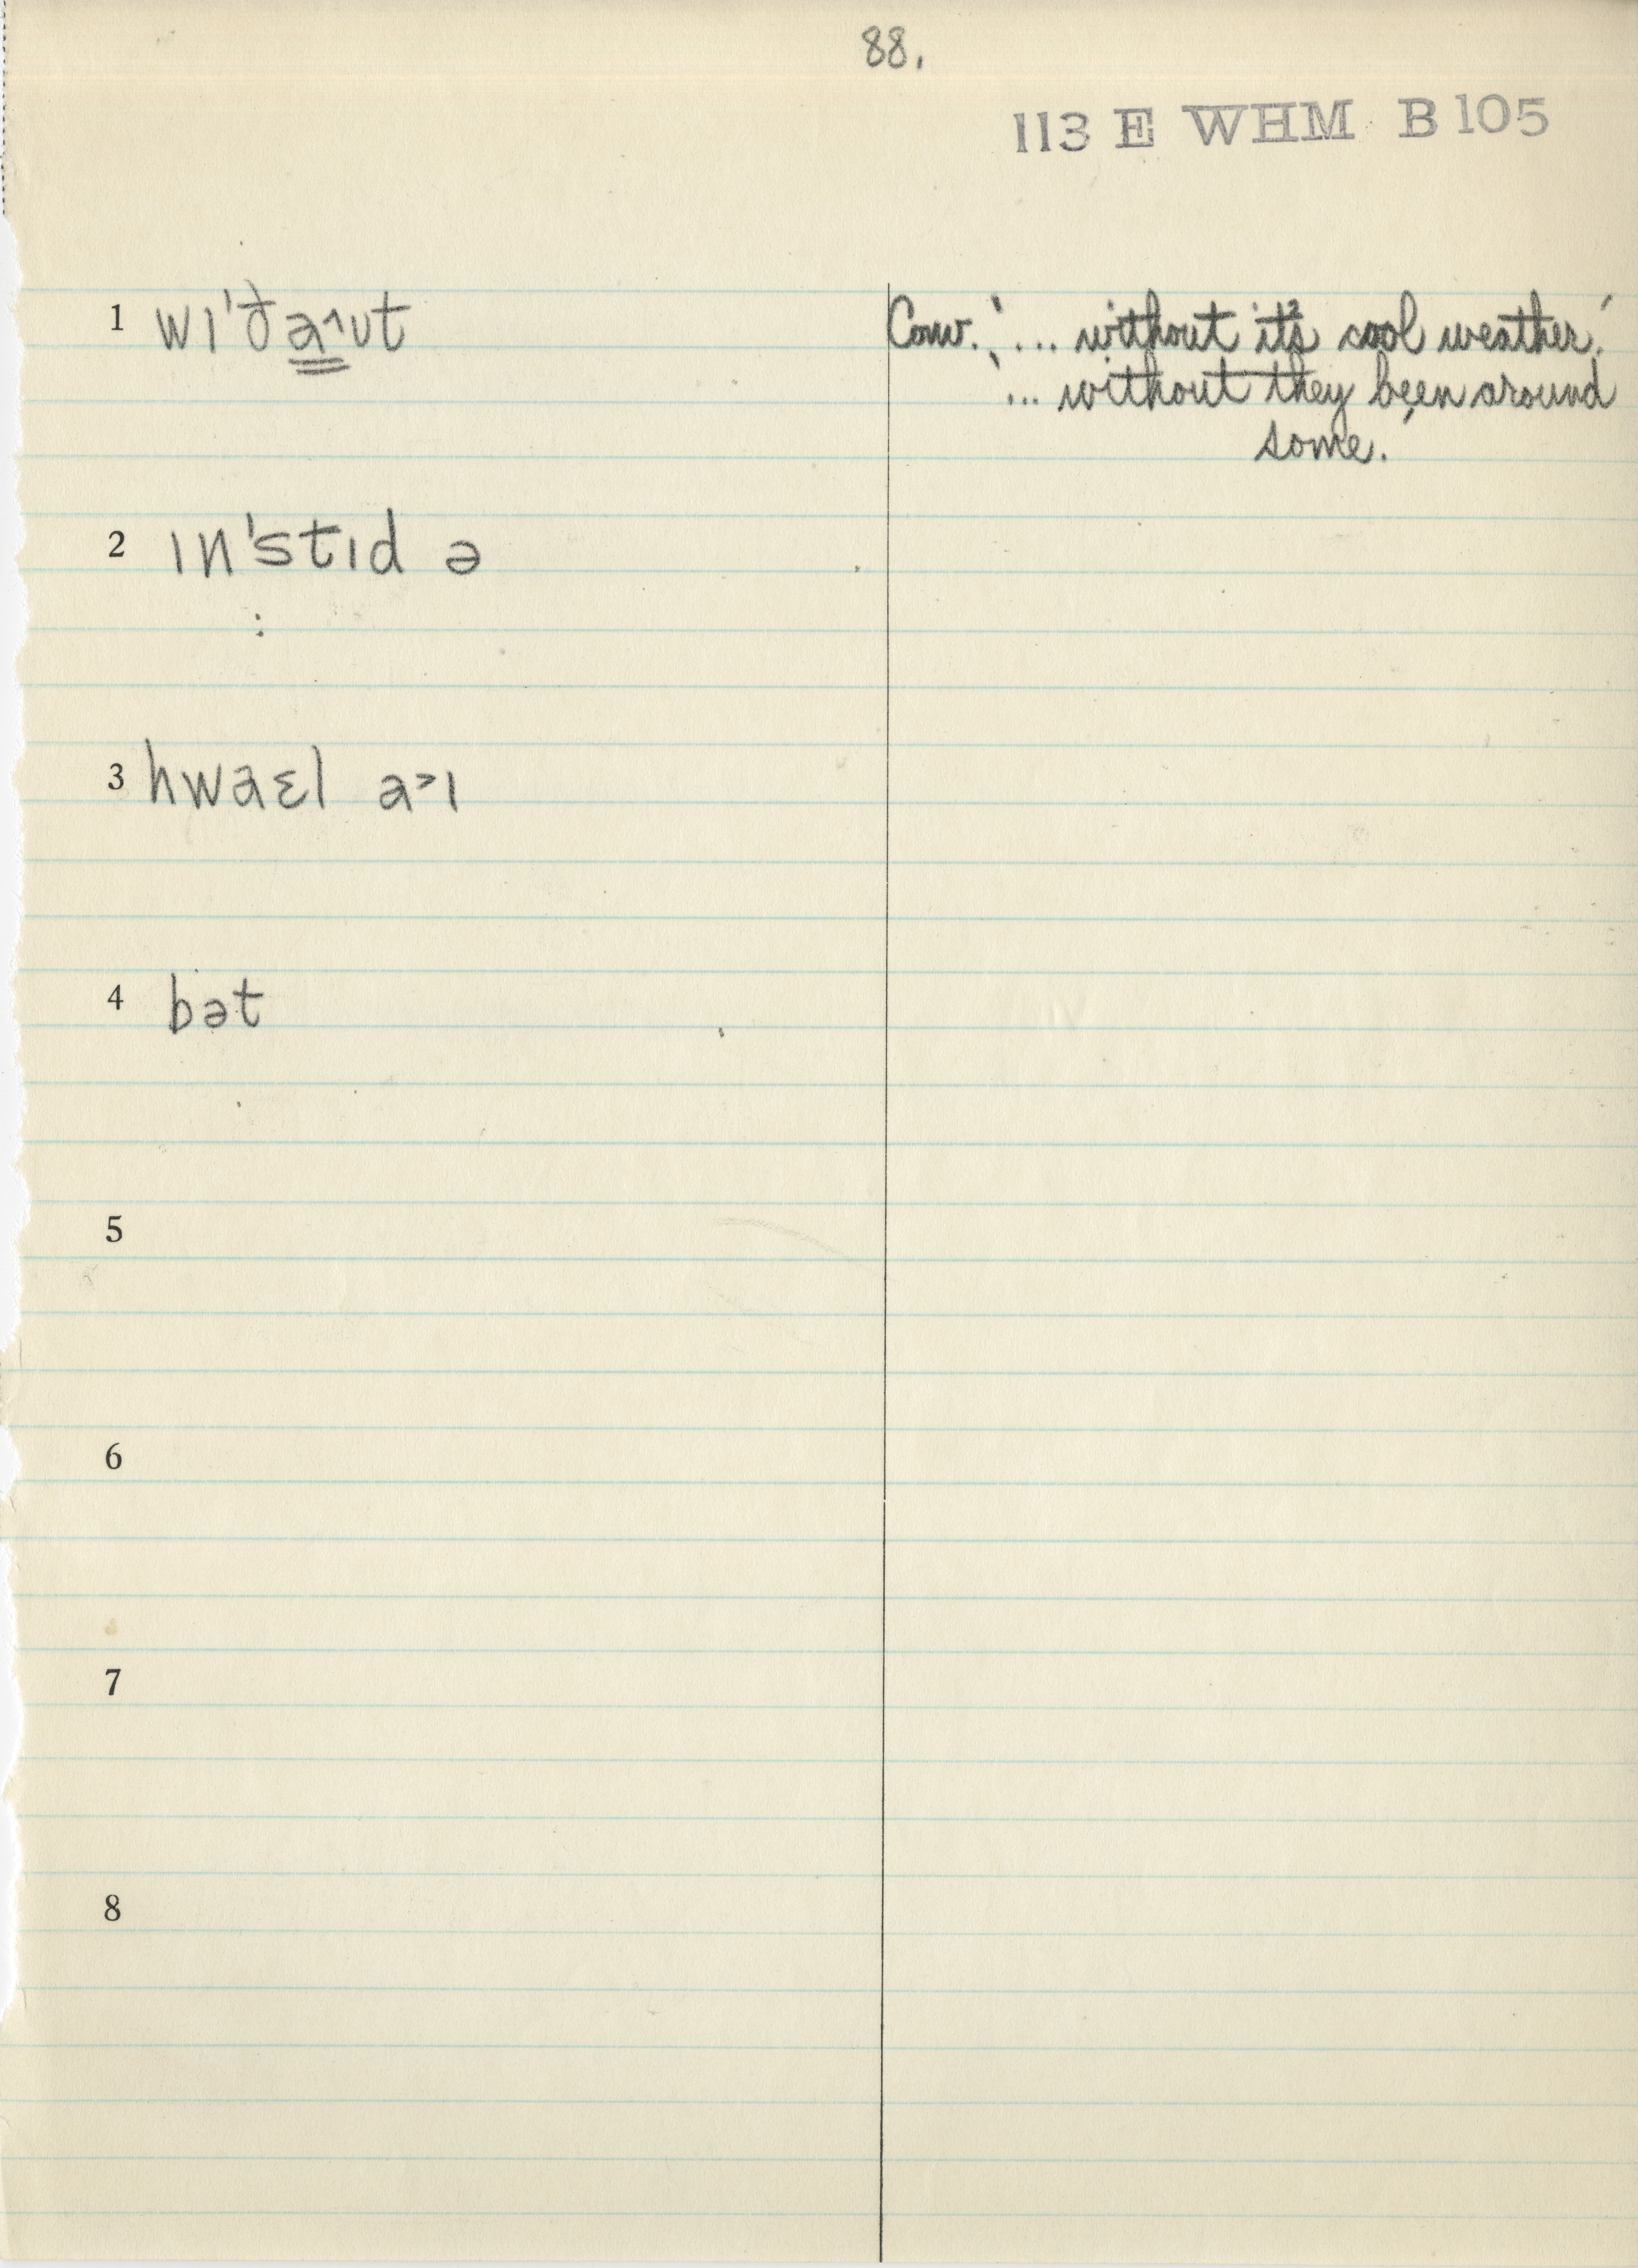 88.
113 E WHM B 105
1 wɪ'ða˄ʊt
Conv. '... without it's cool weather.'
'... without they been around
some.'
2 ɪn'stɪd ə
3 hwaɛl a˃ɪ
4 bət
5
6
7
8